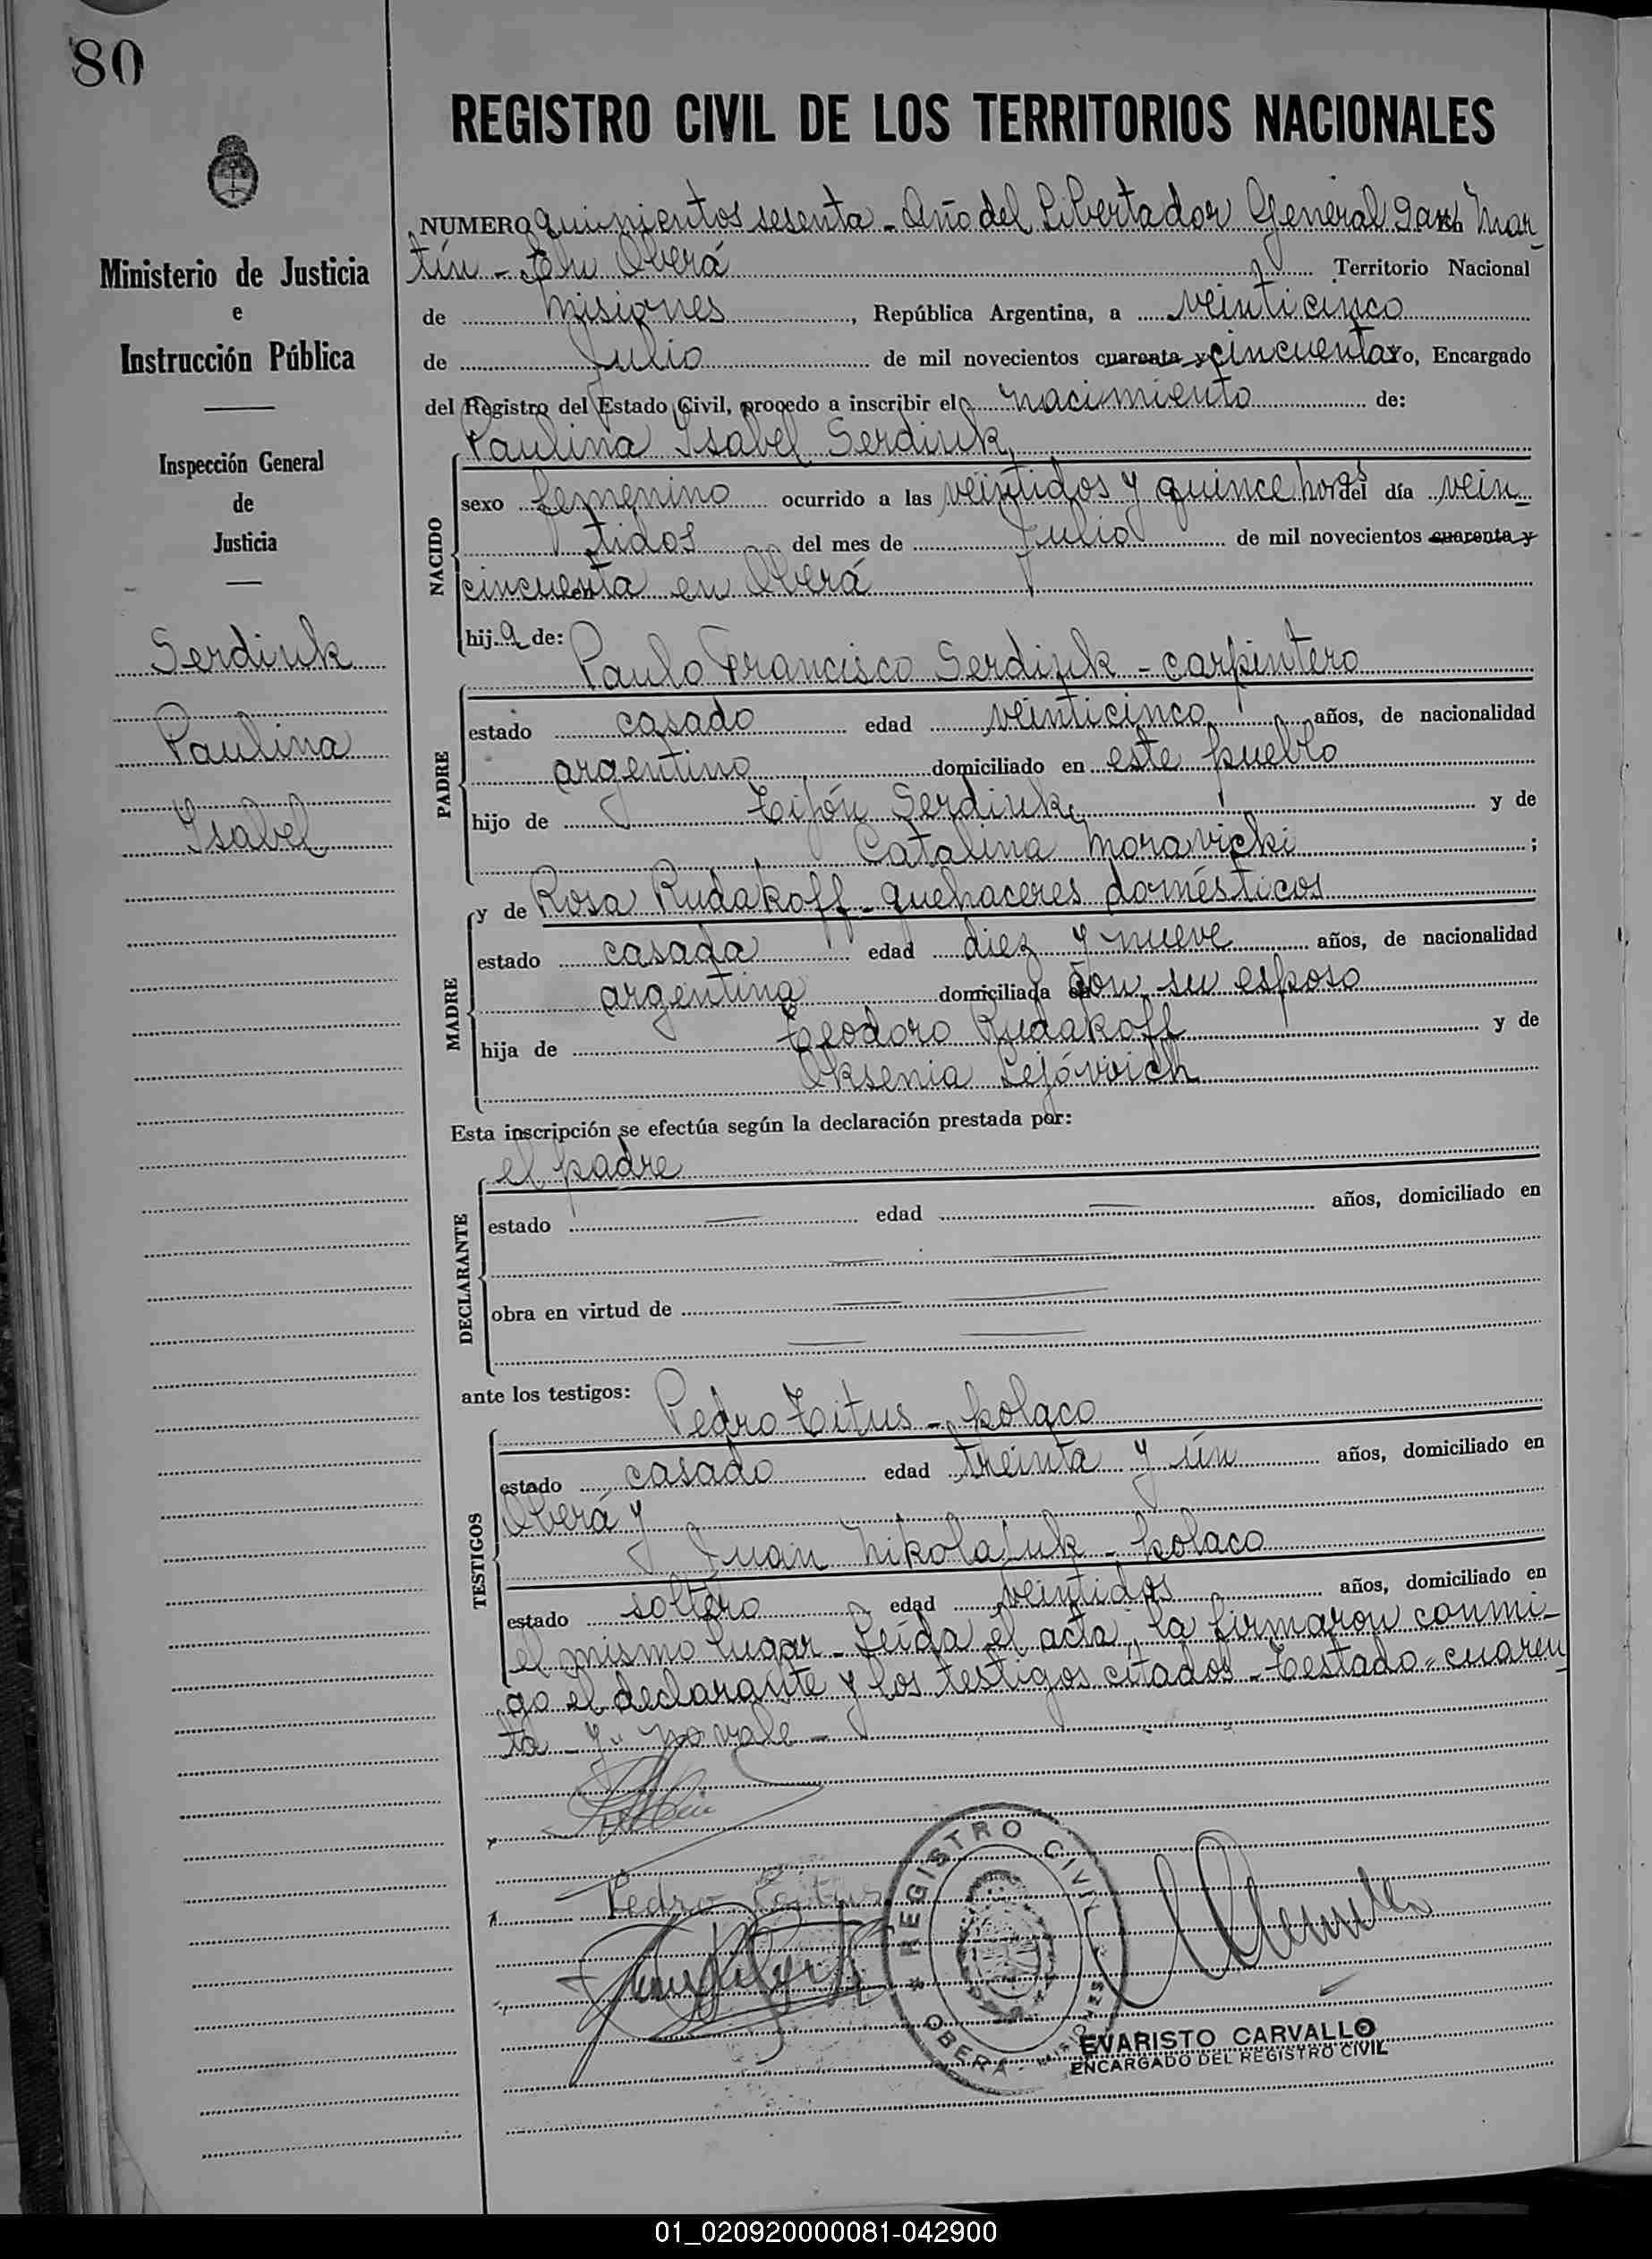 80
Ministerio de Justicia
e
Instrucción Pública
Inspección General
de
Justicia
Serdiuk
Paulina
Isabel
REGISTRO CIVIL DE LOS TERRITORIOS NACIONALES
NUMERO quinientos sesenta - Año del Libertador General San Mar-
tín - En Oberá Territorio Nacional
de Misiones, República Argentina, a veinticinco
de Julio de mil novecientos cuarenta y cincuenta yo, Encargado
del Registro del Estado Civil, procedo a inscribir el nacimiento de:
Paulina Isabel Serdiuk
NACIDO
sexo femenino ocurrido a las veintidos y quince horas del día vein-
tidos del mes de Julio de mil novecientos cuarenta y
cincuenta en Oberá
hija de:
Paulo Francisco Serdiuk - carpintero
PADRE
estado casado edad veinticinco años, de nacionalidad
argentino domiciliado en este pueblo
hijo de Serdiuk y de
Catalina Moravicki;
y de Rosa Rudakoff - quehaceres domésticos
MADRE
estado casada edad diez y nueve años, de nacionalidad
argentina domiciliada con su esposo
hija de Teodoro Rudakoff y de
Oksenia
Esta inscripción se efectúa según la declaración prestada por:
el padre
DECLARANTE
estado edad años, domiciliado en
obra en virtud de
ante los testigos:
Pedro Titus - polaco
TESTIGOS
estado casado edad treinta y ún años, domiciliado en
Oberá y
Juan Nikolajuk - polaco
estado soltero edad veintidos años, domiciliado en
el mismo lugar - Leída el acta, la firmaron conmi-
go el declarante y los testigos citados - Testado "cuaren
ta - y" no vale -
Pedro Titus
REGISTRO CIVIL
OBERA - MISIONES
EVARISTO CARVALLO
ENCARGADO DEL REGISTRO CIVIL
01_020920000081-042900